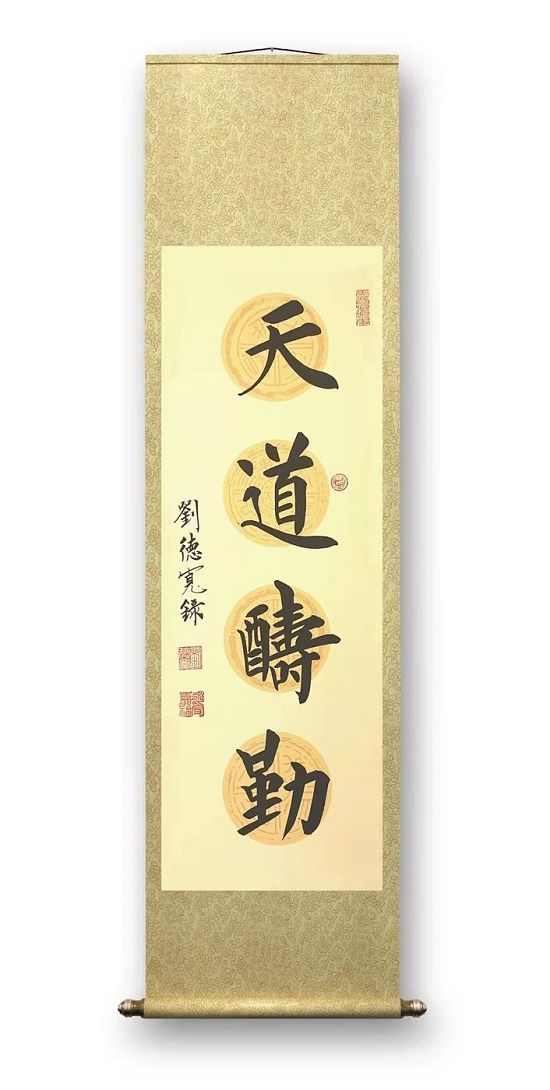 天道醻勤
劉德寬錄